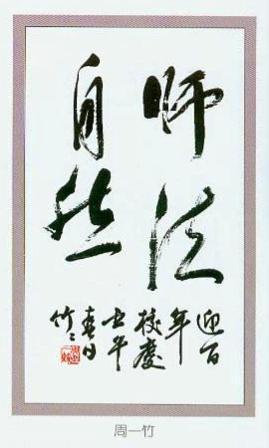 师法
自然
迎百
年
校慶
壬午
春日
竹
周一竹